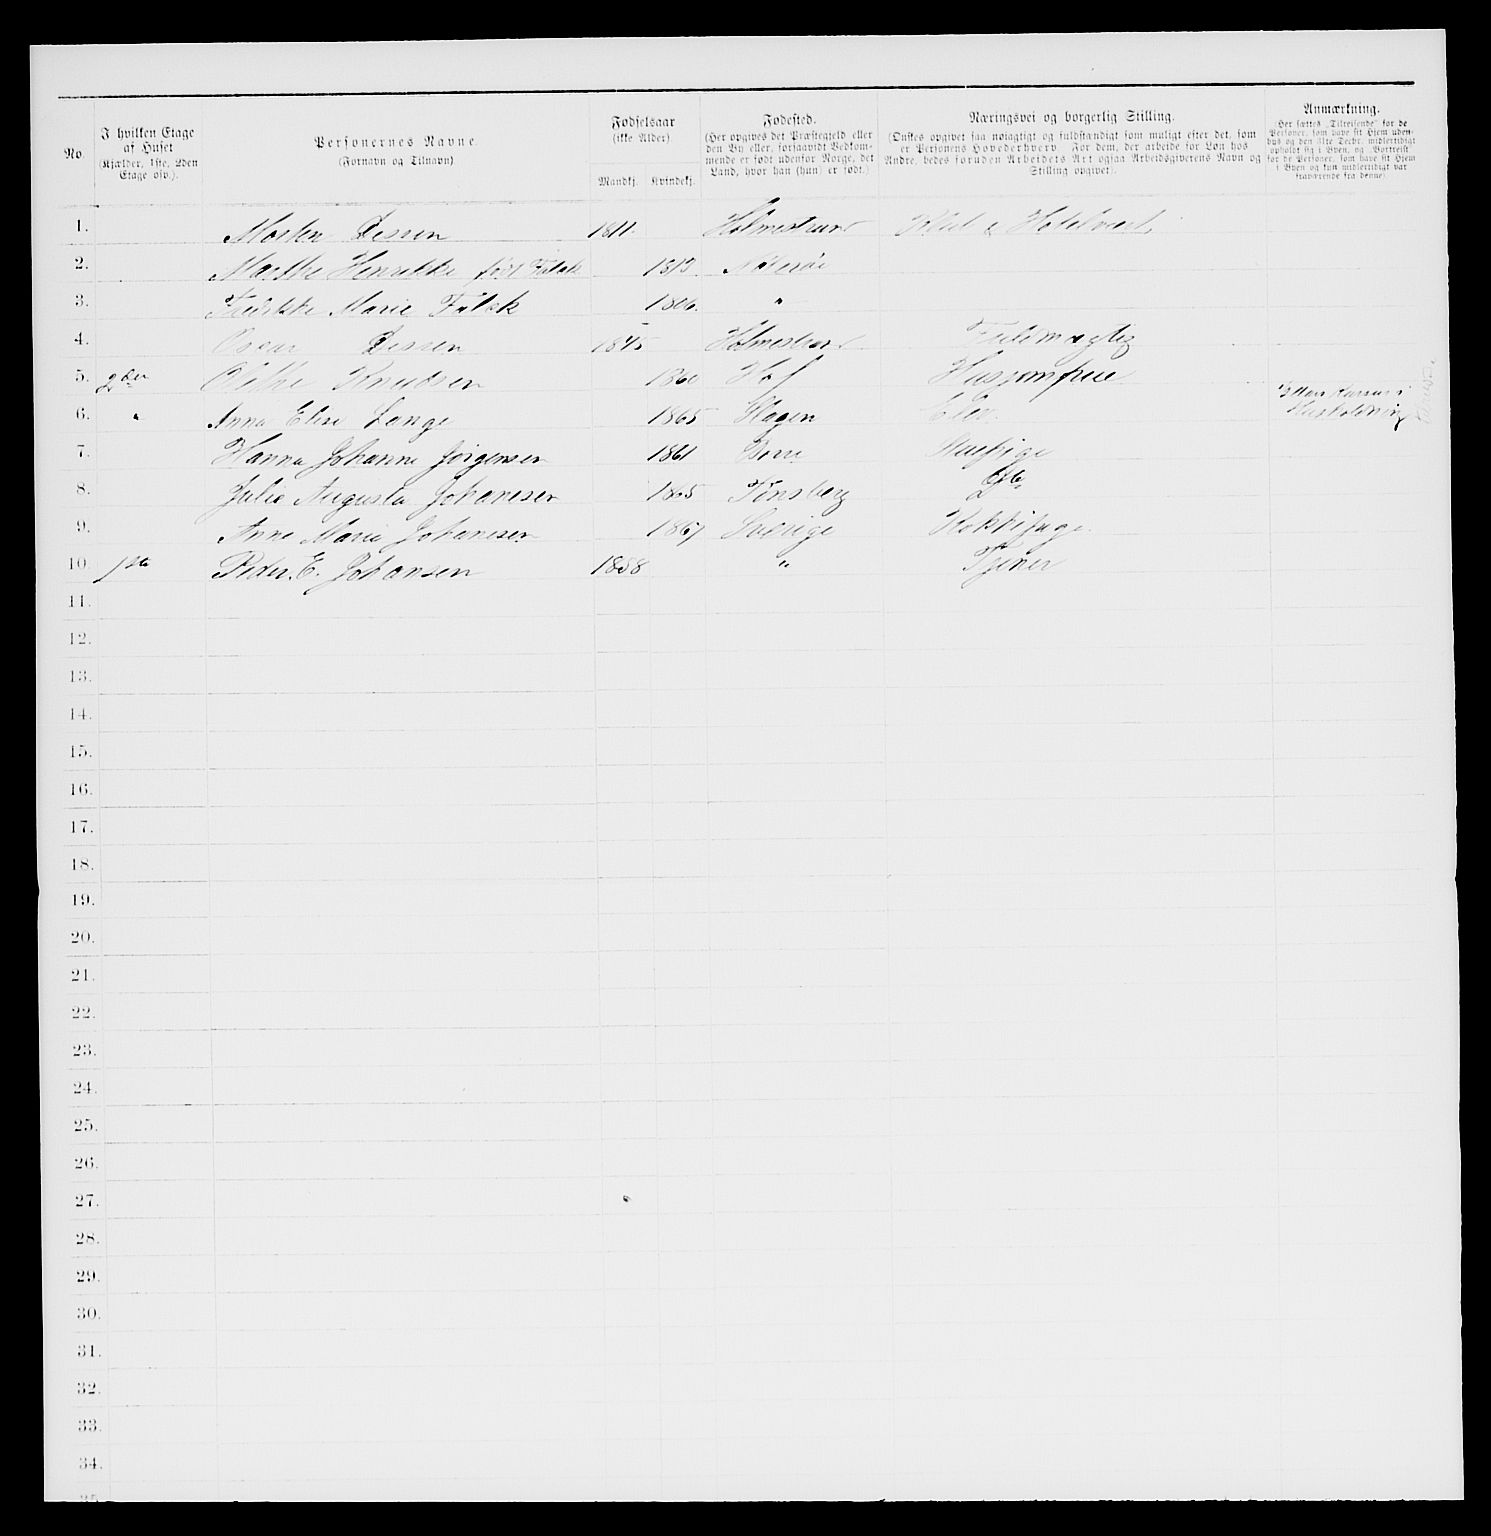 No.
I hvilken Etage
af Huset
(Kjælder, 1ste, 2den
Etage osv.).
Personernes Navne
(Fornavn og Tilnavn)
Fødselsaar
(ikke Alder)
Mandkj. Kvindekj.
Fødested.
(Her opgives det Præstegjeld eller
den By eller, forsaavidt Vedkom-
mende er født udenfor Norge, det
Land, hvor han (hun) er født.)
Næringsvei og borgerlig Stilling.
(Ønskes opgivet saa nøiagtigt og fuldstændigt som muligt efter det, som
er Personens Hovederhverv. For dem, der arbeide for Løn hos
Andre, bedes foruden Arbeidets Art ogsaa Arbeidsgiverens Navn og
Stilling opgivet).
Anmærkning.
(Her sættes „Tilreisende" for de
Personer, som have sit Hjem uden-
bys og den 31te Decbr. midlertidigt
opholdt sig i Byen, og "Bortreist"
for de Personer, som have sit Hjem
i Byen og kun midlertidigt var
fraværende fra denne)
1. Morten Dessen 1811. Holmestrand & Hotelvært
2. Marthe Henrikke født Falck 1813 Nøterøe
3. Fredrikke Marie Falck 1806. "
4. Oscar Dessen 1845 Holmestrand Fuldmægtig
5. 2den Olethe Knudsen 1860 Hof Husjomfrue
6. " Anna Elise Lange 1865 Slagen Elev. Kursus i
Husholdning
7. Hanna Johanne Jørgensen 1861 Borre Stuepige
8. Julie Augusta Johanesen 1865 Tønsberg Do
9. Anne Marie Johanesen 1867 Sverige Kokkepige
10. 1ste Peder. E. Johansen 1858 " Tjener
11.
12.
13.
14.
15.
16.
17.
18.
19.
20.
21.
22.
23.
24.
25.
26.
27.
28.
29.
30.
31.
32.
33.
34.
35